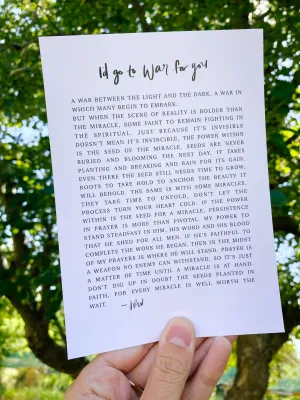 I'd go to War for you
A WAR BETWEEN THE LIGHT AND THE DARK, A WAR IN
WHICH MANY BEGIN TO EMBARK.
BUT WHEN THE SCENE OF REALITY IS BOLDER THAN
THE MIRACLE, SOME FAINT TO REMAIN FIGHTING IN
THE SPIRITUAL. JUST BECAUSE IT'S INVISIBLE
DOESN'T MEAN IT'S INVINCIBLE, THE POWER WITHIN
IS THE SEED OF THE MIRACLE. SEEDS ARE NEVER
BURIED AND BLOOMING THE NEXT DAY, IT TAKES
PLANTING AND BREAKING AND RAIN FOR ITS GAIN.
EVEN THERE THE SEED STILL NEEDS TIME TO GROW,
ROOTS TO TAKE HOLD TO ANCHOR THE BEAUTY IT
WILL BEHOLD. THE SAME IS WITH SOME MIRACLES,
THEY TAKE TIME TO UNFOLD, DON'T LET THE
PROCESS TURN YOUR HEART COLD. IF THE POWER
WITHIN IS THE SEED FOR A MIRACLE, PERSISTENCE
IN PRAYER IS MORE THAN PIVOTAL. MY POWER TO
STAND STEADFAST IN HIM, HIS WORD AND HIS BLOOD
THAT HE SHED FOR ALL MEN. IF HE'S FAITHFUL TO
COMPLETE THE WORK HE BEGAN, THEN IN THE MIDST
OF MY PRAYERS IS WHERE HE WILL STAND. PRAYER IS
A WEAPON NO ENEMY CAN WITHSTAND, SO IT'S JUST
A MATTER OF TIME UNTIL A MIRACLE IS AT HAND.
DON'T DIG UP IN DOUBT THE SEEDS PLANTED IN
FAITH, FOR EVERY MIRACLE IS WELL WORTH THE
WAIT. –